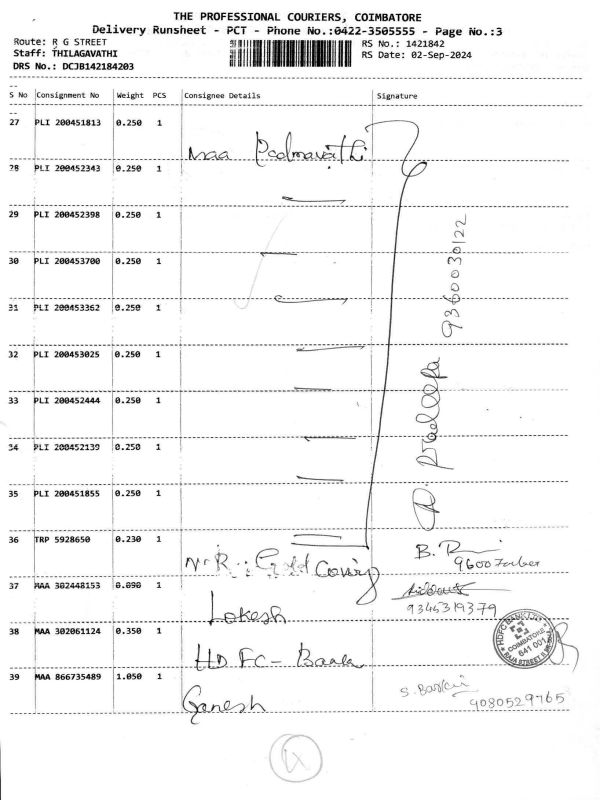 THE PROFESSIONAL COURIERS, COIMBATORE
Delivery Runsheet - PCT - Phone No.:0422-3505555 - Page No.:3
Route: R G STREET RS No.: 1421842
Staff: THILAGAVATHI RS Date: 02-Sep-2024
DRS No.: DCJB142184203
S No Consignment No Weight PCS Consignee Details Signature
27 PLI 200451813 0.250 1 Maa Padmavathi
28 PLI 200452343 0.250 1
29 PLI 200452398 0.250 1
30 PLI 200453700 0.250 1
31 PLI 200453362 0.250 1
32 PLI 200453025 0.250 1
33 PLI 200452444 0.250 1
34 PLI 200452139 0.250 1
35 PLI 200451855 0.250 1
9360030122
36 TRP 5928650 0.230 1 Gold Covig B.
9600
37 MAA 302448153 0.090 1 Lokesh
9345319379
38 MAA 302061124 0.350 1 HDFC - Bank
HDFC BANK LTD
COIMBATORE
641 001
39 MAA 866735489 1.050 1 Ganesh S. Baskar
9080529765